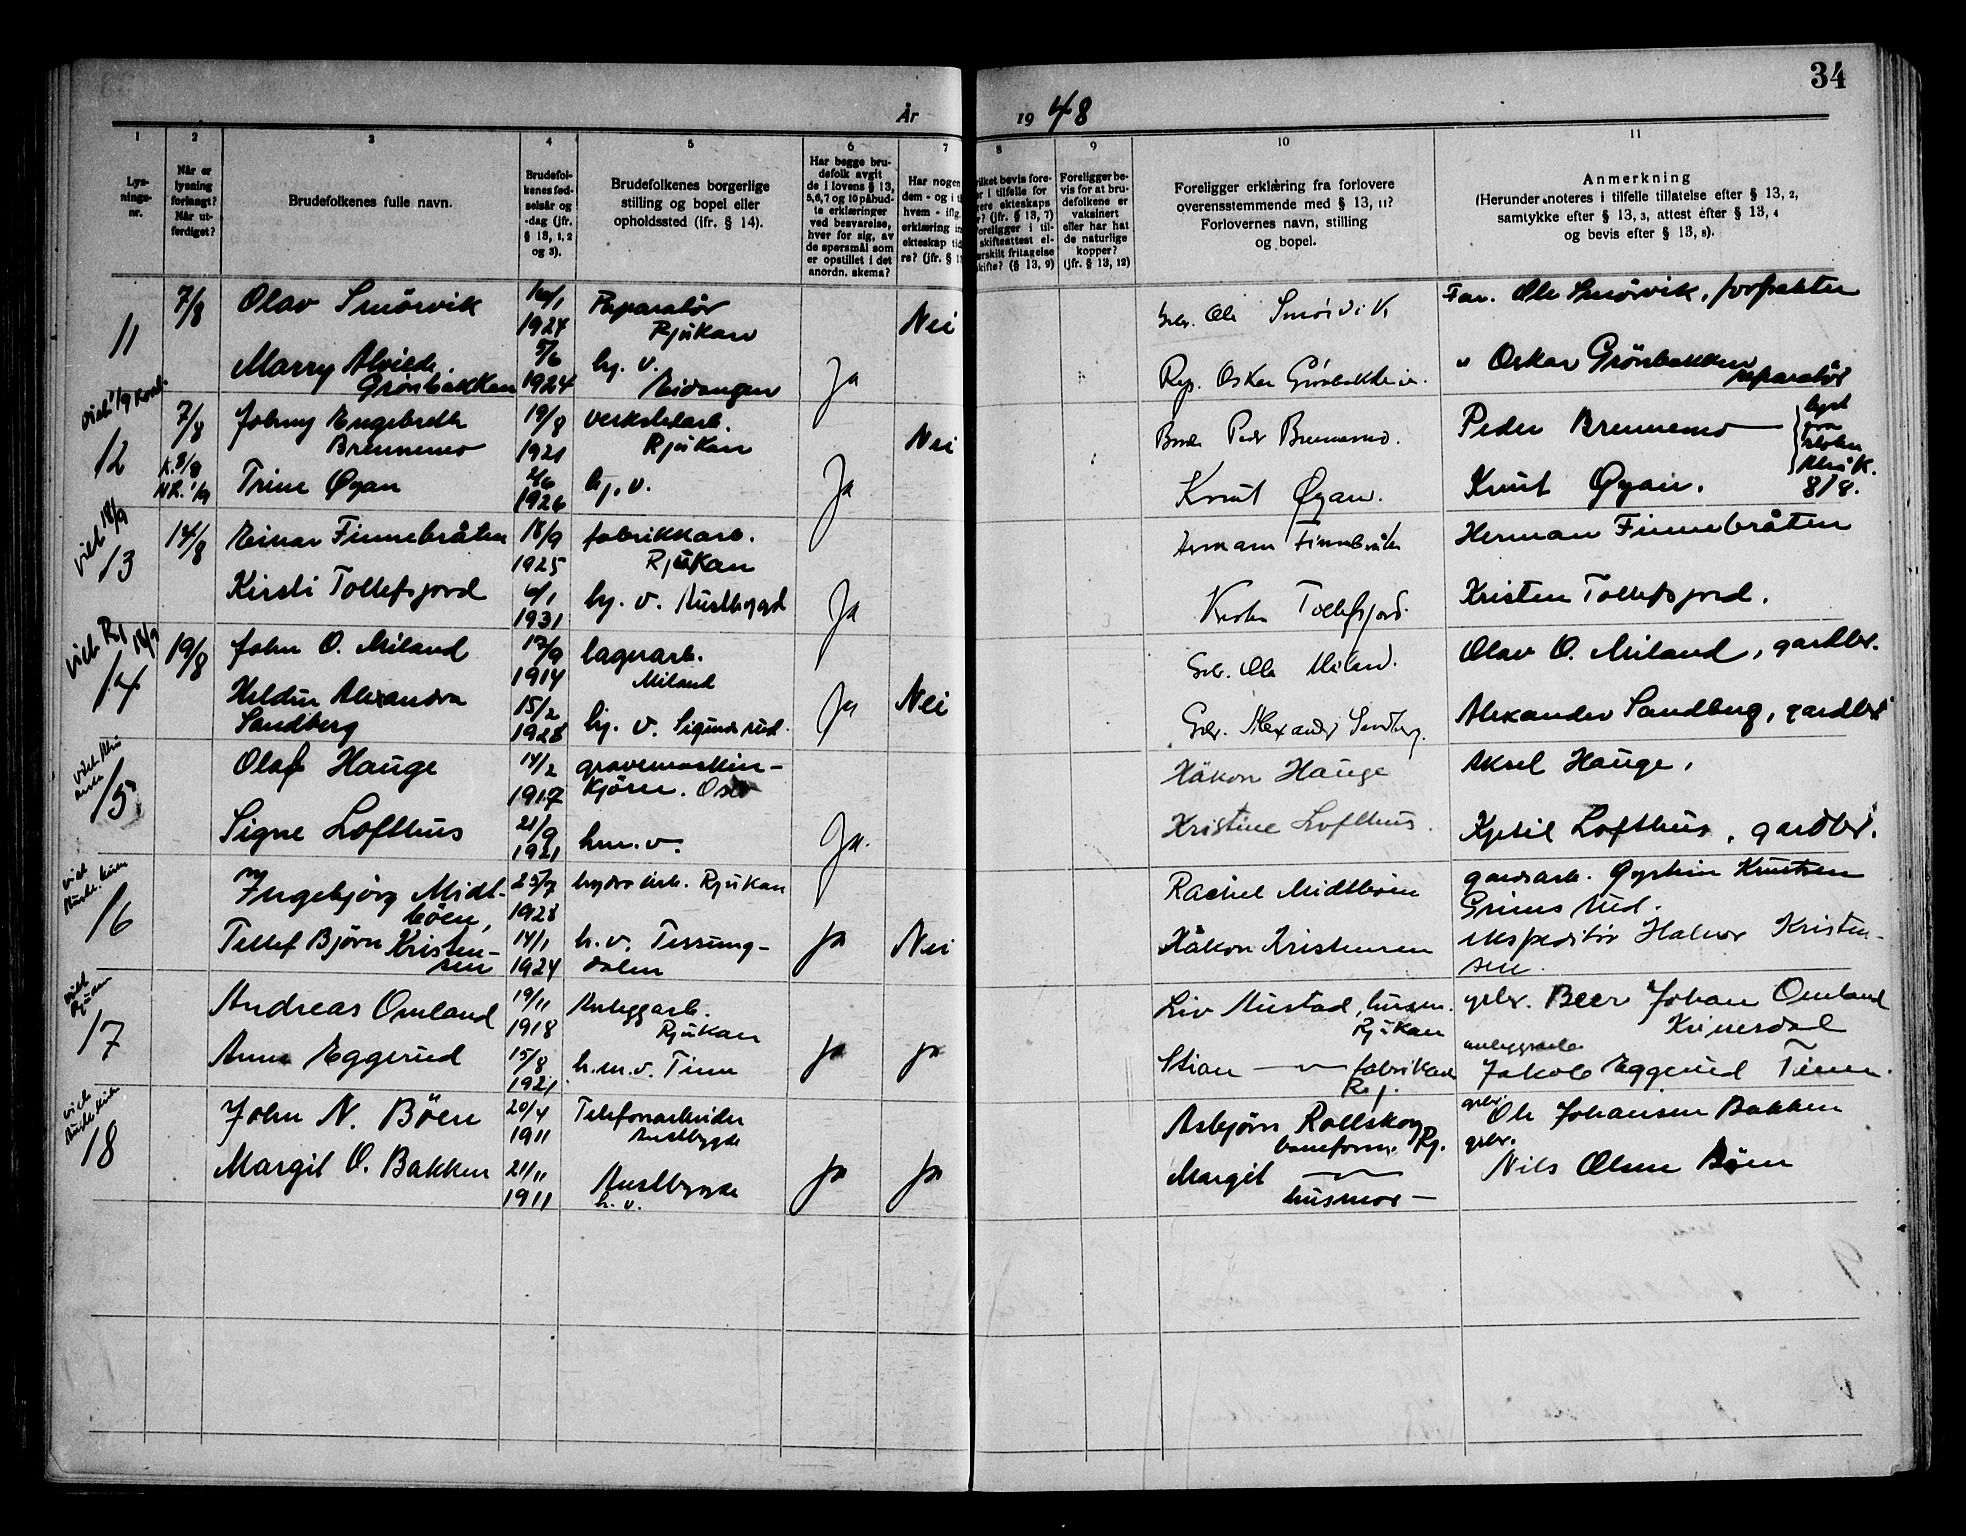 34
År 1948
1 2 3 4 5 6 7 8 9 10 11
Lys-
nings-
nr.
Når er
lysning
forlangt?
Når ut-
ferdiget?
Brudefolkenes fulle navn.
Brudefol-
kenes fød-
selsår og
-dag (jfr.
§ 13, 1, 2
og 3).
Brudefolkenes borgerlige
stilling og bopel eller
opholdssted (jfr. § 14).
Har begge bru-
defolk avgit
de i lovens § 13,
5,6,7 og 10 påbud-
te erklæringer
ved besvarelse,
hver for sig, av
de spørsmål som
er opstillet i det
anordn. skema?
Har nogen
dem - og i t
hvem - ifl.
erklæring in
ekteskap tid
re? (jfr. § 1
ilket bevis fore-
r i tilfelle for
ere ekteskaps
r? (jfr. § 13, 7)
oreligger i til-
skifteattest el-
erskilt fritagelse
kifte? (§ 13, 9)
Foreligger be-
vis for at bru-
defolkene er
vaksinert
eller har hat
de naturlige
kopper?
(jfr. § 13, 12)
Foreligger erklæring fra forlovere
overensstemmende med § 13, 11?
Forlovernes navn, stilling
og bopel.
Anmerkning
(Herunder noteres i tilfelle tillatelse efter § 13, 2,
samtykke efter § 13, 3, attest efter § 13, 4
og bevis efter § 13, 8).
11 7/8 Olav Smörvik 16/1 1924 Reparatör Rjukan Nei Ole Smörvik Far. Ole Smörvik, forpakter
Marry Alvilde Grönbakken 5/6 1924 hj. v. Eidanger Ja Rep. Oskar Grönbakken. " Oskar Grönbakken reparatör
12 7/8 Johny Engebreth Brennemo 19/8 1921 verkstedarb. Rjukan Nei Peder Brennemo. Peder Brennemo
Trine Øyan 1926 hj. v. Ja Knut Øyan. Knut Øyan. 8/8.
viet 18/9
13 14/8 Einar Finnebråten 18/9 1925 fabrikkarb. Rjukan Herman Finnebråten Herman Finnebråten
Kirsti Tollefsjord 6/1 1931 hj. v. Austbygd Ja Tollefsjord. Kristen Tollefsjord.
viet 18/9
14 19/8 John O. Miland 1914 lagerarb. Miland Gbr. Ole Miland. Olav O. Miland, gardbr.
Heldur Alexandra Sandberg 15/2 1928 hj. v. Sigurdsrud. Ja Nei Gbr. Alexander Sandberg. Alexander Sandberg, gardbr.
viet
15 Olaf Hauge 14/2 1917 gravemaskin-
kjörer. Oslo Håkon Hauge Aksel Hauge.
Signe Lofthus 21/9 1921 hm. v. Ja. Kristine Lofthus. Kjetil Lofthus, gardbr.
viet
16 Ingebjörg Midt-
böen, 25/7 1928 hydroarb. Rjukan Rachel Midtböen gardsarb. Knutsen
Grimsrud.
Tellef Björn Kristen-
sen 14/1 1924 h. v. Tessung-
dalen Ja Nei Håkon Kristensen ekspeditör Halvor Kristen-
sen.
viet
17 Andreas Omland 19/11 1918 Anleggarb. Rjukan Liv Mustad, husm. Rjukan gbr. Beer Johan Omland
Kvinesdal
Anna Eggerud 15/8 1921 h.m.v. Tinn ja ja Stian — fabrikarb. Rj. anleggsarb. Jakob Eggerud Tinn.
viet
18 John N. Böen 20/4 1911 Telefonarbeider Austbygde Asbjörn Rollskog baneform. Rj. gbr. Ole Johansen Bakken
Margit O. Bakken 21/11 1911 Austbygde h. v. ja ja Margit — husmor — gbr. Nils Olsen Böen